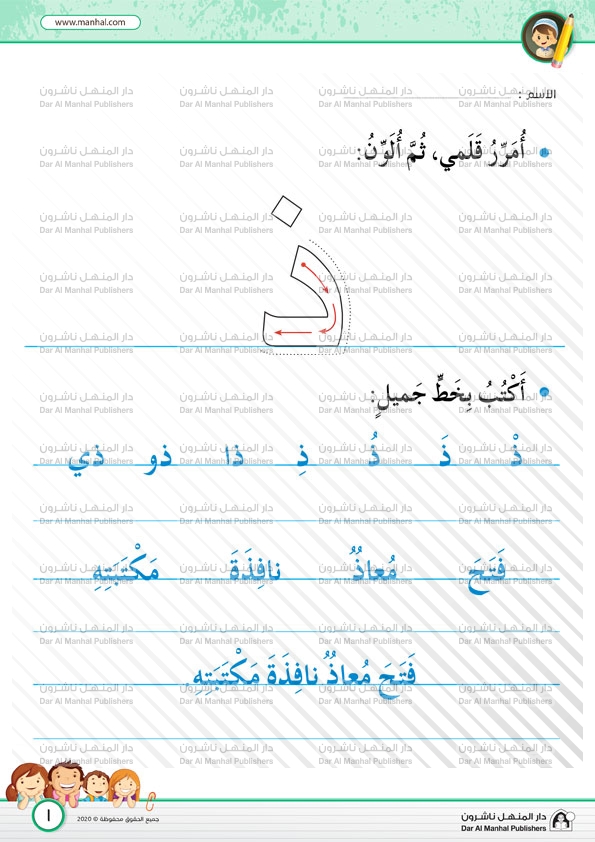 www.manhal.com
الاسم :
• أُمَرِّرُ قَلَمي، ثُمَّ أُلَوِّنُ:
ذ
• أَكْتُبُ بِخَطٍّ جَميلٍ:
ذْ ذَ ذُ ذِ ذا ذو ذي
فَتَحَ مُعاذٌ نافِذَةَ مَكْتَبَتِهِ
فَتَحَ مُعاذٌ نافِذَةَ مَكْتَبَتِهِ
دار المنهل ناشرون
Dar Al Manhal Publishers
جميع الحقوق محفوظة © 2020
١